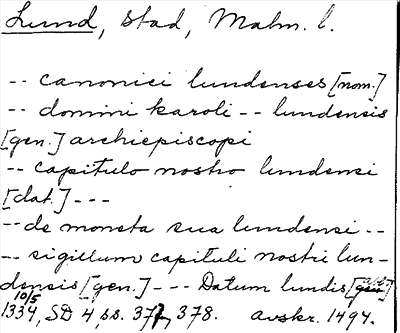 Lund, stad, Malm. l.
-- canonici lundenses [nom.]
-- domini karoli -- lundensis
[gen.] archiepiscopi
-- capitulo nostro lundensi
[dat.] ---
-- de moneta sua lundensi --
-- sigillum capituli nostri lun-
densis [gen.] --- Datum lundis
10/5
1334, SD 4, ss. 377, 378. avskr. 1494.